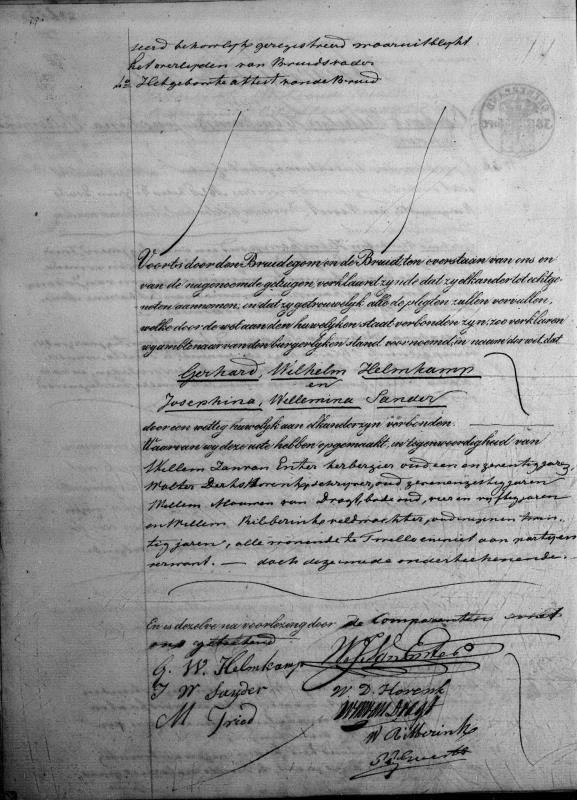 seerd behoorlyk geregistreerd waaruit blykt
het overlyden van Bruidsvader
4o Het geboorte attest van de Bruid
Voorts door den Bruidegom en de Bruid, ten overstaan van ons en
van de nagenoemde getuigen, verklaard zynde dat zy elkander tot echtge-
noten aannemen, en dat zy getrouwelyk alle de pligten zullen vervullen,
welke door de wet aan den huwelyken staat verbonden zyn, zoo verklaren
wy ambtenaar van den burgerlyken stand voornoemd, in naam der wet, dat
Gerhard, Wilhelm Helmkamp
en
Josephina, Willemina Sander
door een wettig huwelyk aan elkander zyn verbonden.
Waarvan wy deze acte hebben opgemaakt, in tegenwoordigheid van
Willem Jan van Enter herbergier oud een en zeventig jaren,
Wolter Derk Horenk, schryver, oud zeven en zestig jaren
Willem Mouwen van Dragt, bode oud, vier en vyftig jaren
en Willem Bilderink veldwachter, oud negen en twin-
tig jaren, alle wonende te Twello en niet aan partyen
verwant. — doch deze mede onderteekenende.
En is dezelve na voorlezing door de Comparanten met
ons geteekend
G. W. Helmkamp
J W Sander
W. D. Horenk
M Tried